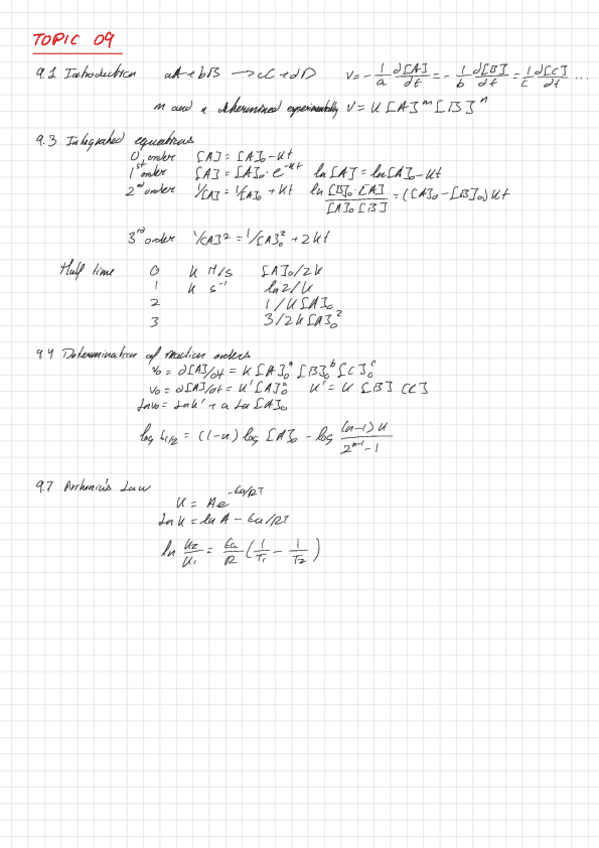 TOPIC 09
9.1 Introduction aA+bB → cC+dD v = - 1/a ∂[A]/∂t = - 1/b ∂[B]/∂t = 1/c ∂[C]/∂t ...
m and n determined experimentally v = k [A]^m [B]^n
9.3 Integrated equations
0 order [A] = [A]₀ - kt
1st order [A] = [A]₀ · e^-kt ln [A] = ln[A]₀ - kt
2nd order 1/[A] = 1/[A]₀ + kt ln [B]₀·[A]/[A]₀[B] = ([A]₀ - [B]₀) kt
3rd order 1/[A]² = 1/[A]₀² + 2kt
Half time 0 k M/s [A]₀/2k
1 k s⁻¹ ln2/k
2 1/k[A]₀
3 3/2k[A]₀²
9.4 Determination of reaction orders
v₀ = ∂[A]/∂t = k [A]₀^a [B]₀^b [C]₀^c
v₀ = ∂[A]/∂t = k' [A]₀^a k' = k [B] [C]
ln v₀ = ln k' + a ln [A]₀
log t1/2 = (1-n) log [A]₀ - log (n-1) k / 2^n-1 - 1
9.7 Law
k = Ae^-Ea/RT
ln k = ln A - Ea/RT
ln k₂/k₁ = Ea/R (1/T₁ - 1/T₂)